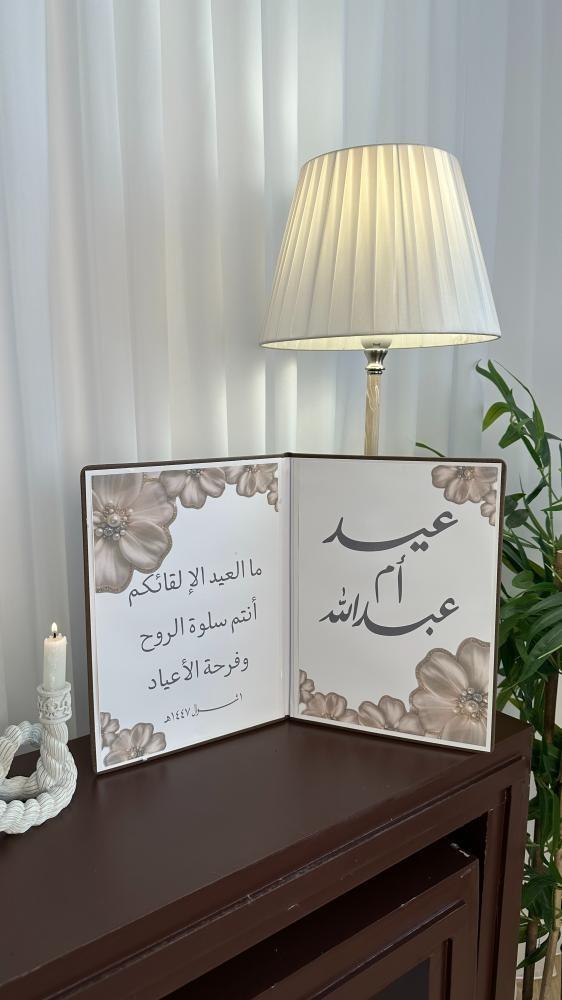 عيد
أم
عبدالله
ما العيد الإ لقائكم
أنتم سلوة الروح
وفرحة الأعياد
١ شوال ١٤٤٧هـ